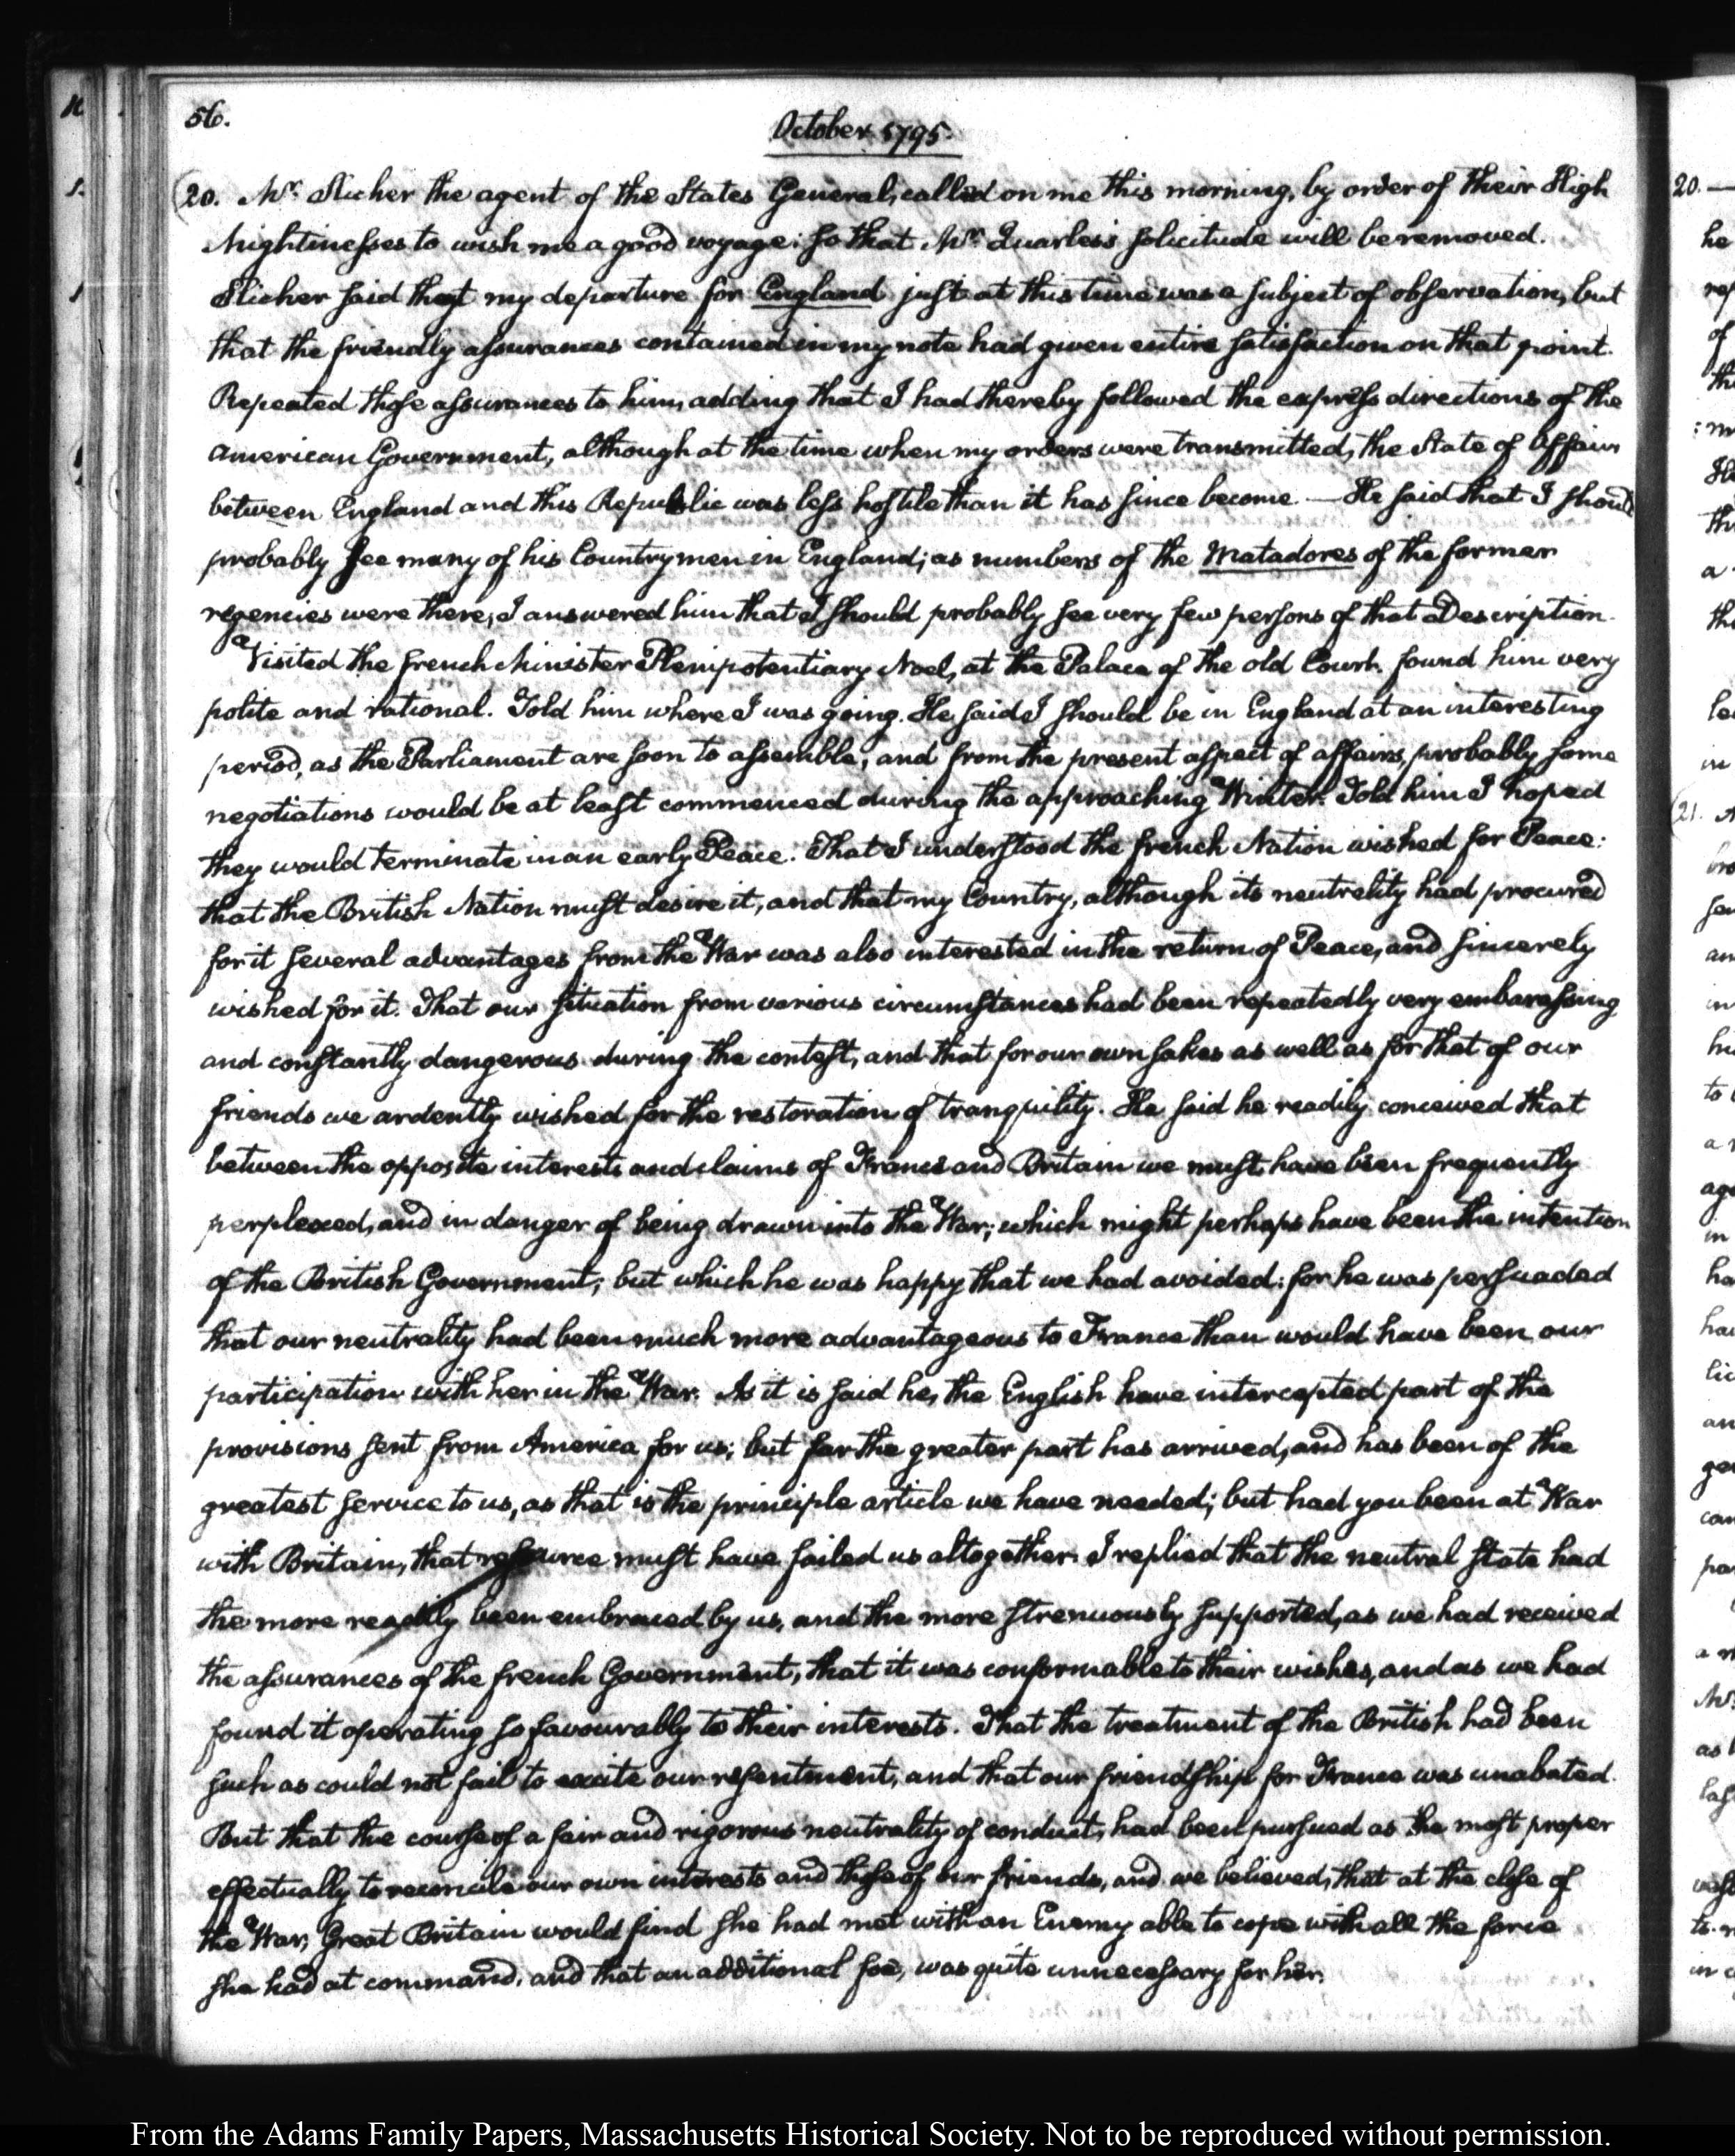 56.
October 1795.
20. Mr. Slicher the agent of the States General, called on me this morning, by order of their High
Mightinesses to wish me a good voyage: so that Mr. Quarles's solicitude will be removed.
Slicher said that my departure for England just at this time was a subject of observation, but
that the friendly assurances contained in my note had given entire satisfaction on that point.
Repeated those assurances to him, adding that I had thereby followed the express directions of the
American Government, although at the time when my orders were transmitted, the State of Affairs
between England and this Republic was less hostile than it has since become. — He said that I should
probably see many of his Countrymen in England; as numbers of the Matadores of the former
regencies were there, I answered him that I should probably see very few persons of that Description.
Visited the french Minister Plenipotentiary Noel, at the Palace of the old Court. found him very
polite and rational. Told him where I was going. He said I should be in England at an interesting
period, as the Parliament are soon to assemble, and from the present aspect of affairs, probably some
negotiations would be at least commenced during the approaching Winter. Told him I hoped
they would terminate in an early Peace. That I understood the french Nation wished for Peace:
that the British Nation must desire it, and that my Country, although its neutrality had procured
for it several advantages from the War was also interested in the return of Peace, and sincerely
wished for it. That our situation from various circumstances had been repeatedly very embarassing
and constantly dangerous during the contest, and that for our own sakes as well as for that of our
friends we ardently wished for the restoration of tranquility. He said he readily conceived that
between the opposite interests and claims of France and Britain we must have been frequently
perplexed, and in danger of being drawn into the War; which might perhaps have been the intention
of the British Government; but which he was happy that we had avoided: for he was persuaded
that our neutrality had been much more advantageous to France than would have been our
participation with her in the War. As it is said he, the English have intercepted part of the
provisions sent from America for us; but far the greater part has arrived, and has been of the
greatest service to us, as that is the principle article we have needed; but had you been at War
with Britain, that resource must have failed us altogether. I replied that the neutral state had
the more readily been embraced by us, and the more strenuously supported, as we had received
the assurances of the french Government, that it was conformable to their wishes, and as we had
found it operating so favourably to their interests. That the treatment of the British had been
such as could not fail to excite our resentment, and that our friendship for France was unabated.
But that the course of a fair and rigorous neutrality of conduct, had been pursued as the most proper
effectually to reconcile our own interests and those of our friends, and we believed, that at the close of
the War, Great Britain would find she had met with an Enemy able to cope with all the force
she had at command, and that an additional foe, was quite unnecessary for her.
From the Adams Family Papers, Massachusetts Historical Society. Not to be reproduced without permission.